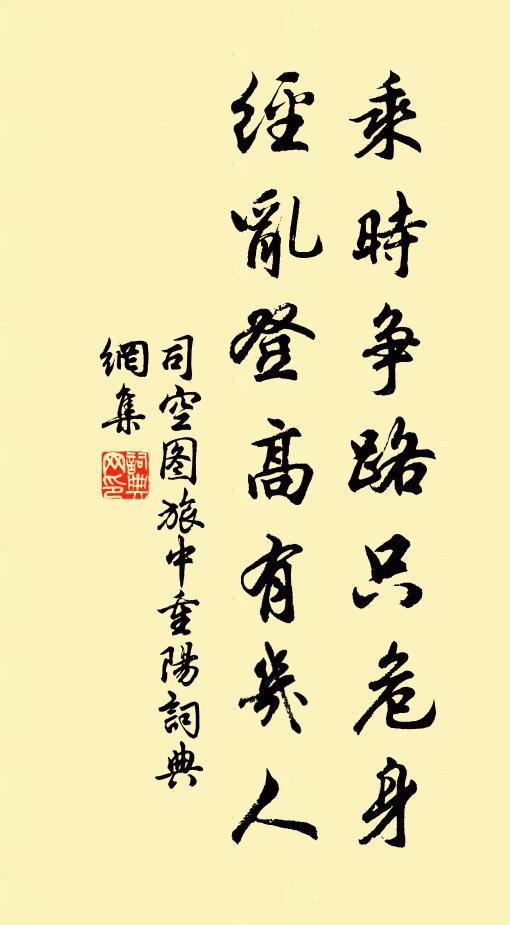 乘時争路只危身
經亂登高有幾人
司空图旅中重陽詞典
網集
詞典网印